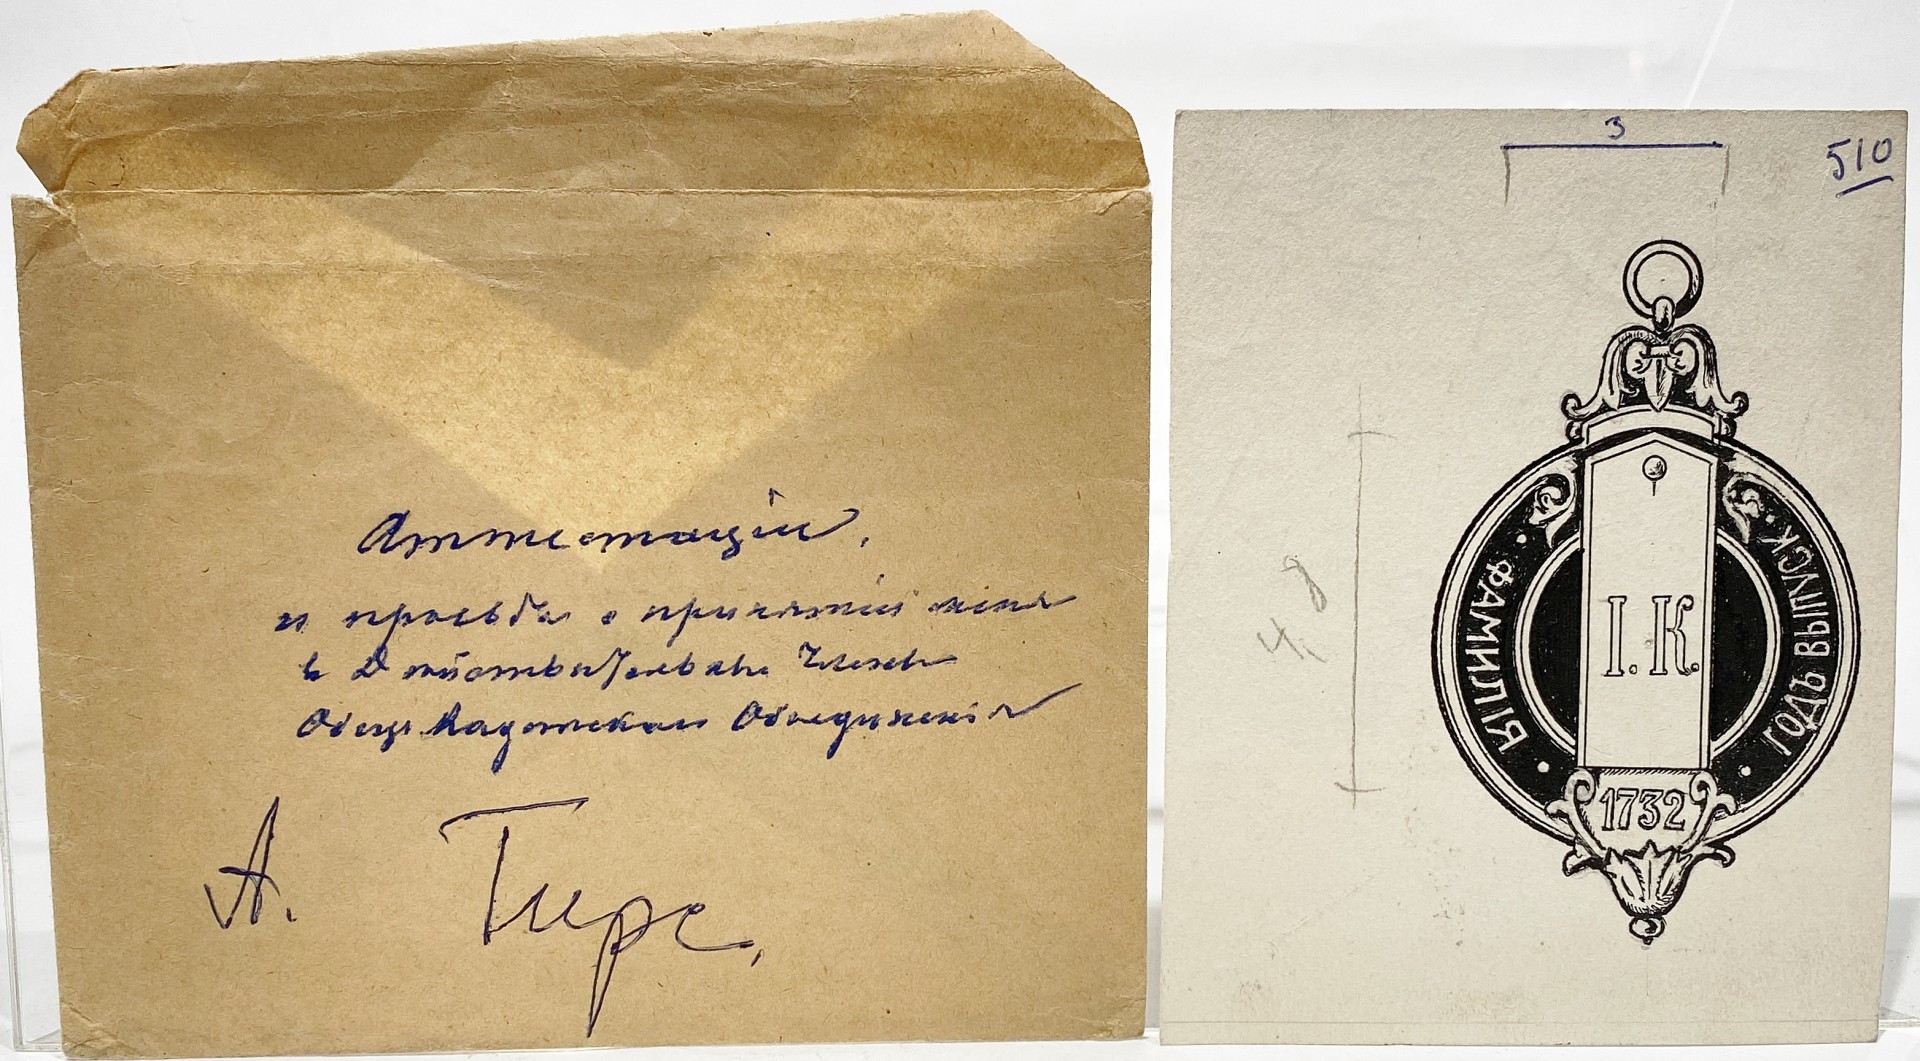 Аттестаціи,
и просьба о принятіи меня
въ Действительные Члены
Обще Кадетскаго Объединенія
А. Гирс,
3
510
4.8
ФАМИЛІЯ
ГОДЪ ВЫПУСК.
I. К.
1732